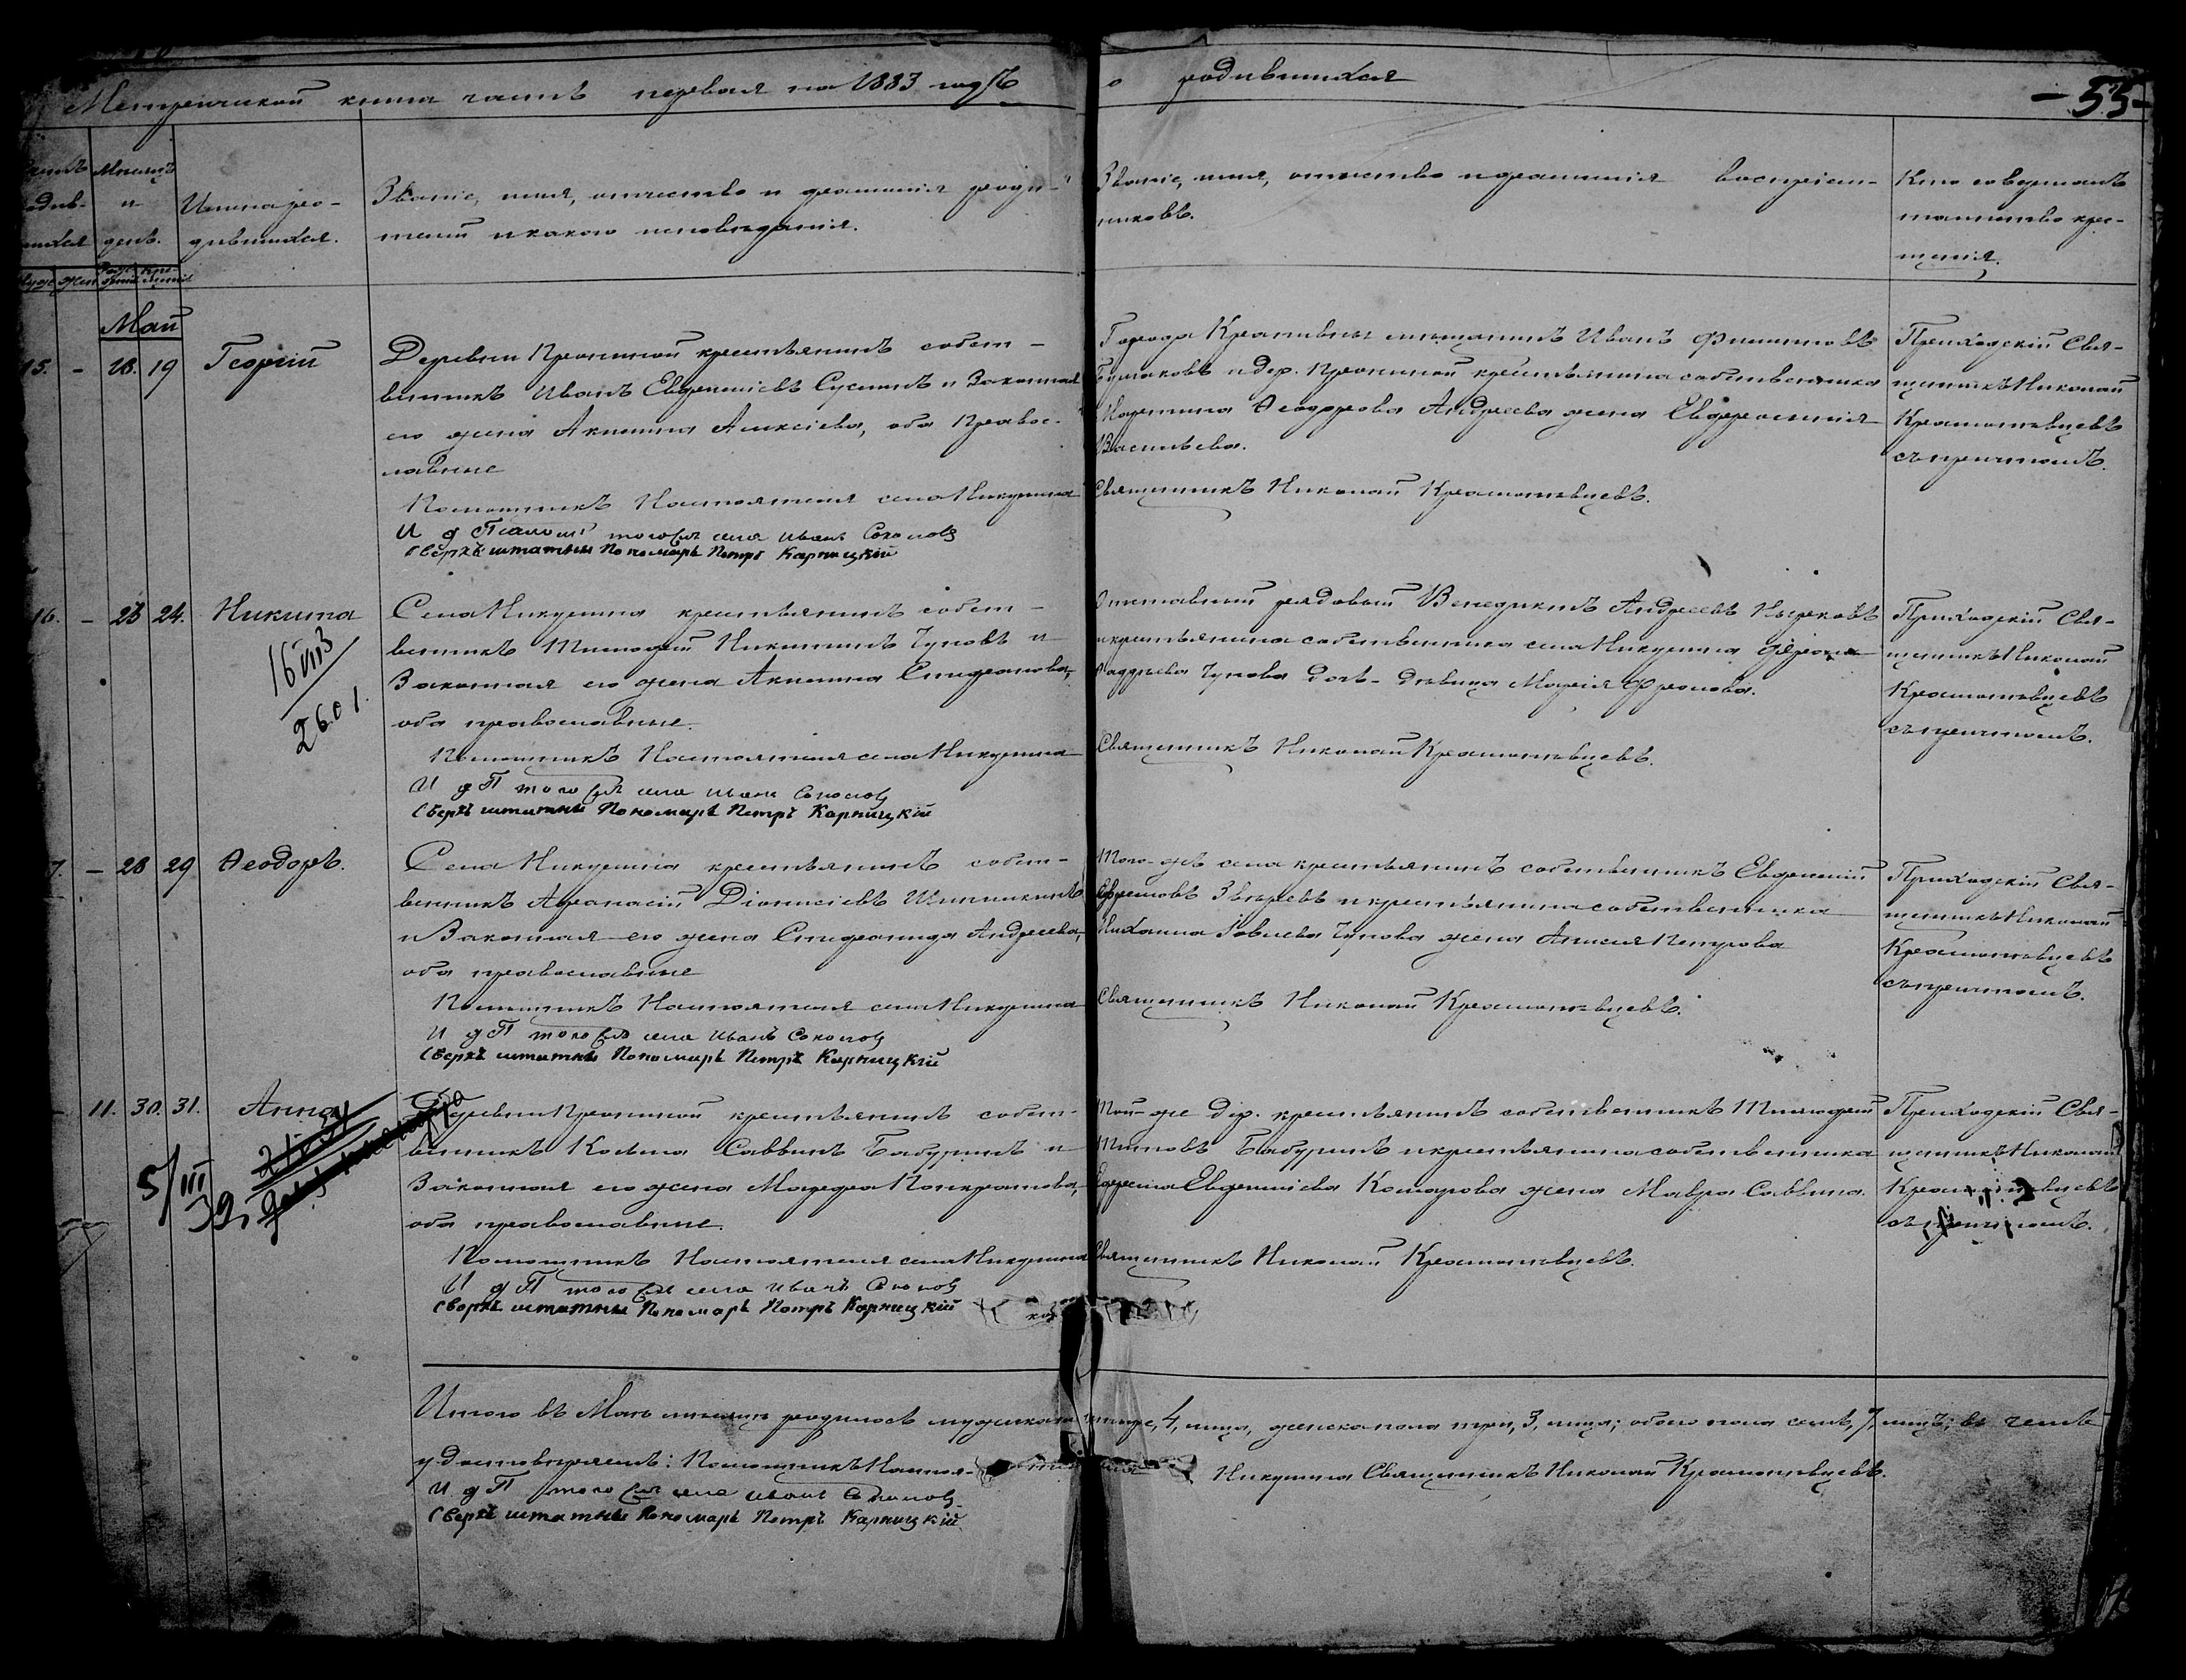 Метрической книги часть первая на 1883 годъ
о родившихся
- 55 -
Мѣсяцъ
и
день.
Имена ро-
дившихся.
Званіе, имя, отчество и фамилія роди-
телей и какого исповѣданія.
Званіе, имя, отчество и фамилія воспріем-
никовъ.
Кто совершалъ
таинство кре-
щенія.
Май
15. - 18. 19 Георгій
Деревни Прониной крестьянинъ собст-
венникъ Иванъ Евфиміевъ и Законная
его жена Акилина Алексіева, оба Правос-
лавные
Помощникъ Настоятеля села Никулина
И д Псалом того села Иванъ Соколовъ
Сверхъ штатный Пономарь Петръ Карницкій
Города Крапивны мѣщанинъ Иванъ Филиповъ
и дер. Прониной крестьянина собственника
Мартина Ѳеодорова Андреева жена Евфросинія
Васильева.
Священникъ Николай
Приходскій Свя-
щенникъ Николай
съ причтомъ.
16. - 23 24. Никита
16 VIII 3
2601.
Села Никулина крестьянинъ собст-
венникъ Тимофей Никитинъ Чуповъ и
Законная его жена Акилина Спиридонова,
оба православные.
Помощникъ Настоятеля села Никулина
И д П того села Иванъ Соколовъ
Сверхъ штатный Пономарь Петръ Карницкій
Отставный рядовый Венедиктъ Андреевъ
и крестьянина собственника села Никулина
Чупова дочь-дѣвица Марія Фролова.
Священникъ Николай
Приходскій Свя-
щенникъ Николай
съ причтомъ.
7. - 28 29 Ѳеодоръ.
Села Никулина крестьянинъ собст-
венникъ Афанасій Діонисіевъ
и Законная его жена Степанида Андреева,
оба православные
Помощникъ Настоятеля села Никулина
И д П того села Иванъ Соколовъ
Сверхъ штатный Пономарь Петръ Карницкій
Того-же села крестьянинъ собственникъ Евфимій
Ефремовъ Звѣревъ и крестьянина собственника
Михаила Іовлева Чупова жена Анисія Петрова
Священникъ Николай
Приходскій Свя-
щенникъ Николай
съ причтомъ.
- 11. 30. 31. Анна
5/III
39
Деревни Прониной крестьянинъ собст-
венникъ Косьма Саввинъ Бабуринъ и
Законная его жена Марфа Панкратова,
оба православные.
Помощникъ Настоятеля села Никулина
И д П того села Иванъ Соколовъ
Сверхъ штатный Пономарь Петръ Карницкій
Той-же дер. крестьянинъ собственникъ Тимофей
Титовъ Бабуринъ и крестьянина собственника
Ефрема Евфиміева Комарова жена Мавра Саввина.
Священникъ Николай
Приходскій Свя-
щенникъ Николай
съ причтомъ.
Итого въ Маѣ мѣсяцѣ родилось мужска четыре, 4, лица, женска пола три, 3, лица; обоего пола семь, 7, лицъ; въ чемъ
удостовѣряемъ: Помощникъ Никулина Священникъ Николай
И д П того села Иванъ Соколовъ
Сверхъ штатный Пономарь Петръ Карницкій